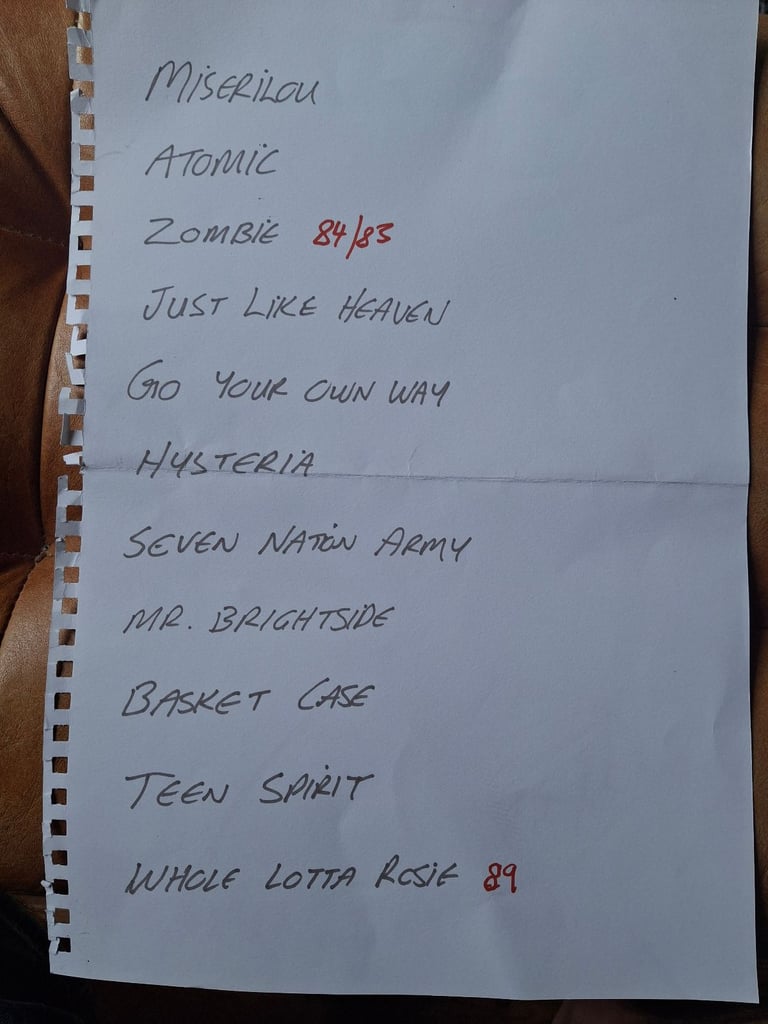 MISERILOU
ATOMIC
ZOMBIE 84/83
JUST LIKE HEAVEN
GO YOUR OWN WAY
HYSTERIA
SEVEN NATION ARMY
MR. BRIGHTSIDE
BASKET CASE
TEEN SPIRIT
WHOLE LOTTA ROSIE 89